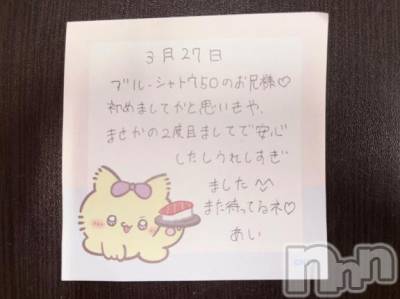 3月27日
ブル-シャトウ50のお兄様♡
初めましてかと思いきや、
まさかの2度目ましてで安心
したしうれしすぎ
ました^^
また待ってるネ♡
あい
nnn